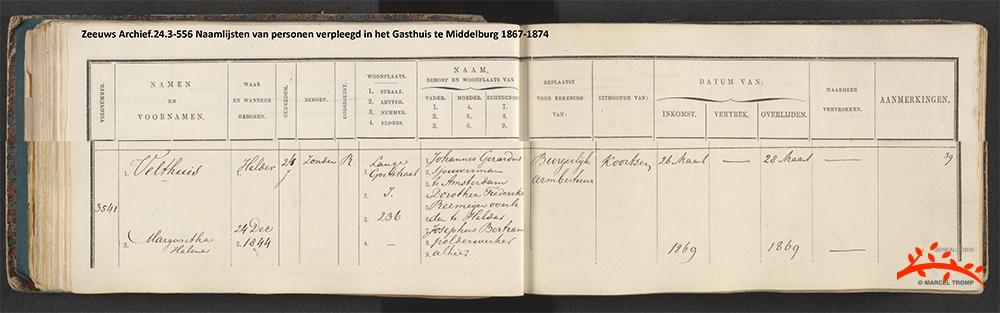 Zeeuws Archief.24.3-556 Naamlijsten van personen verpleegd in het Gasthuis te Middelburg 1867-1874
VOLGNUMMER.
NAMEN
EN
VOORNAMEN.
WAAR
EN WANNEER
GEBOREN.
OUDERDOM.
BEROEP.
GODSDIENST.
WOONPLAATS.
1. STRAAT.
2. LETTER.
3. NUMMER.
4. ELDERS.
NAAM,
BEROEP EN WOONPLAATS VAN
VADER. MOEDER. ECHTGENOOT
1. 4. 7.
2. 5. 8.
3. 6. 9.
GEPLAATST
VOOR REKENING
VAN:
UITHOOFDE VAN:
DATUM VAN:
INKOMST. VERTREK. OVERLIJDEN.
WAARHEEN
VERTROKKEN.
AANMERKINGEN.
3541
1. Velthuis
2. Margaretha
Helena
1. Helder
24 Dec
2. 1844
24
Zonder
R
1. Lange
Gortstraat
2. I.
3. 236
4. —
1. Johannes Gerardus
2. Sjouwerman
3. te Amsterdam
4. Dorothea Frederika
5. Beemeijer overle
6. den te Helder
7. Josephus Bertram
8. polderwerker
9. alhier
Burgerlijk
Armbestuur
Koortsen
26 Maart — 28 Maart —
1869 1869 —
39
GENEALOGIEËN
© MARCEL TROMP